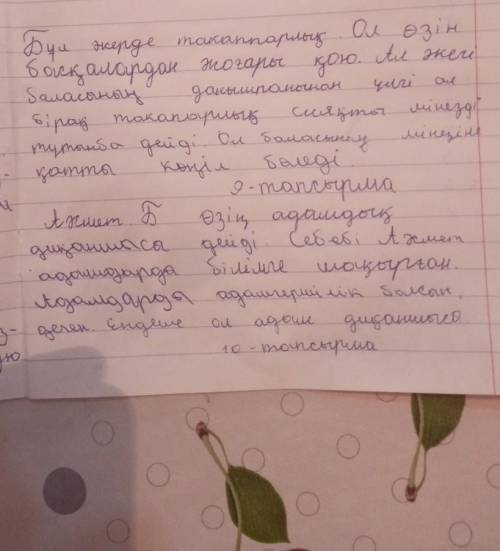 Бұл жерде такаппарлық. Ол өзін
басқалардан жоғары қою. Ал жеке
баласының данышпанынан үлгі ал
бірақ такапарлық сияқты мінезді
тұтанба дейді. Ол баласының мінезіне
қатты көңіл бөледі.
9-тапсырма
Ахмет Б өзін адамдық
диқаншысы дейді. Себебі Ахмет
адамдарда білімге шақырған.
Адамдарда адамгершілік болсын,
деген. Ендеше ол адам диқаншысы
10-тапсырма